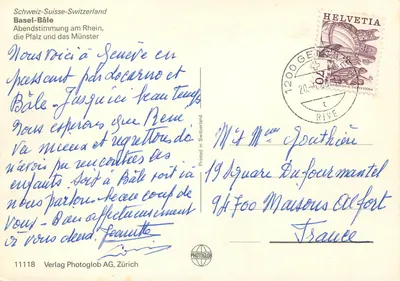 Schweiz-Suisse-Switzerland
Basel-Bâle
Abendstimmung am Rhein,
die Pfalz und das Münster
HELVETIA
70
1200 GENÈVE
RIVE
Nous voici à Genève en
passant par Locarno et
Bâle - Jusqu'ici beau temps
Nous espérons que René
va mieux et regrettons de
n'avoir pu rencontrer les
enfants. Soit à Bâle soit ici
nous parlons beaucoup de
vous - Bien affectueusement
à vous deux. Jeannette
Mr et Mme
19 Square Dufourmantel
94700 Maisons Alfort
France
Printed in Switzerland
11118 Verlag Photoglob AG, Zürich
PHOTOGLOB